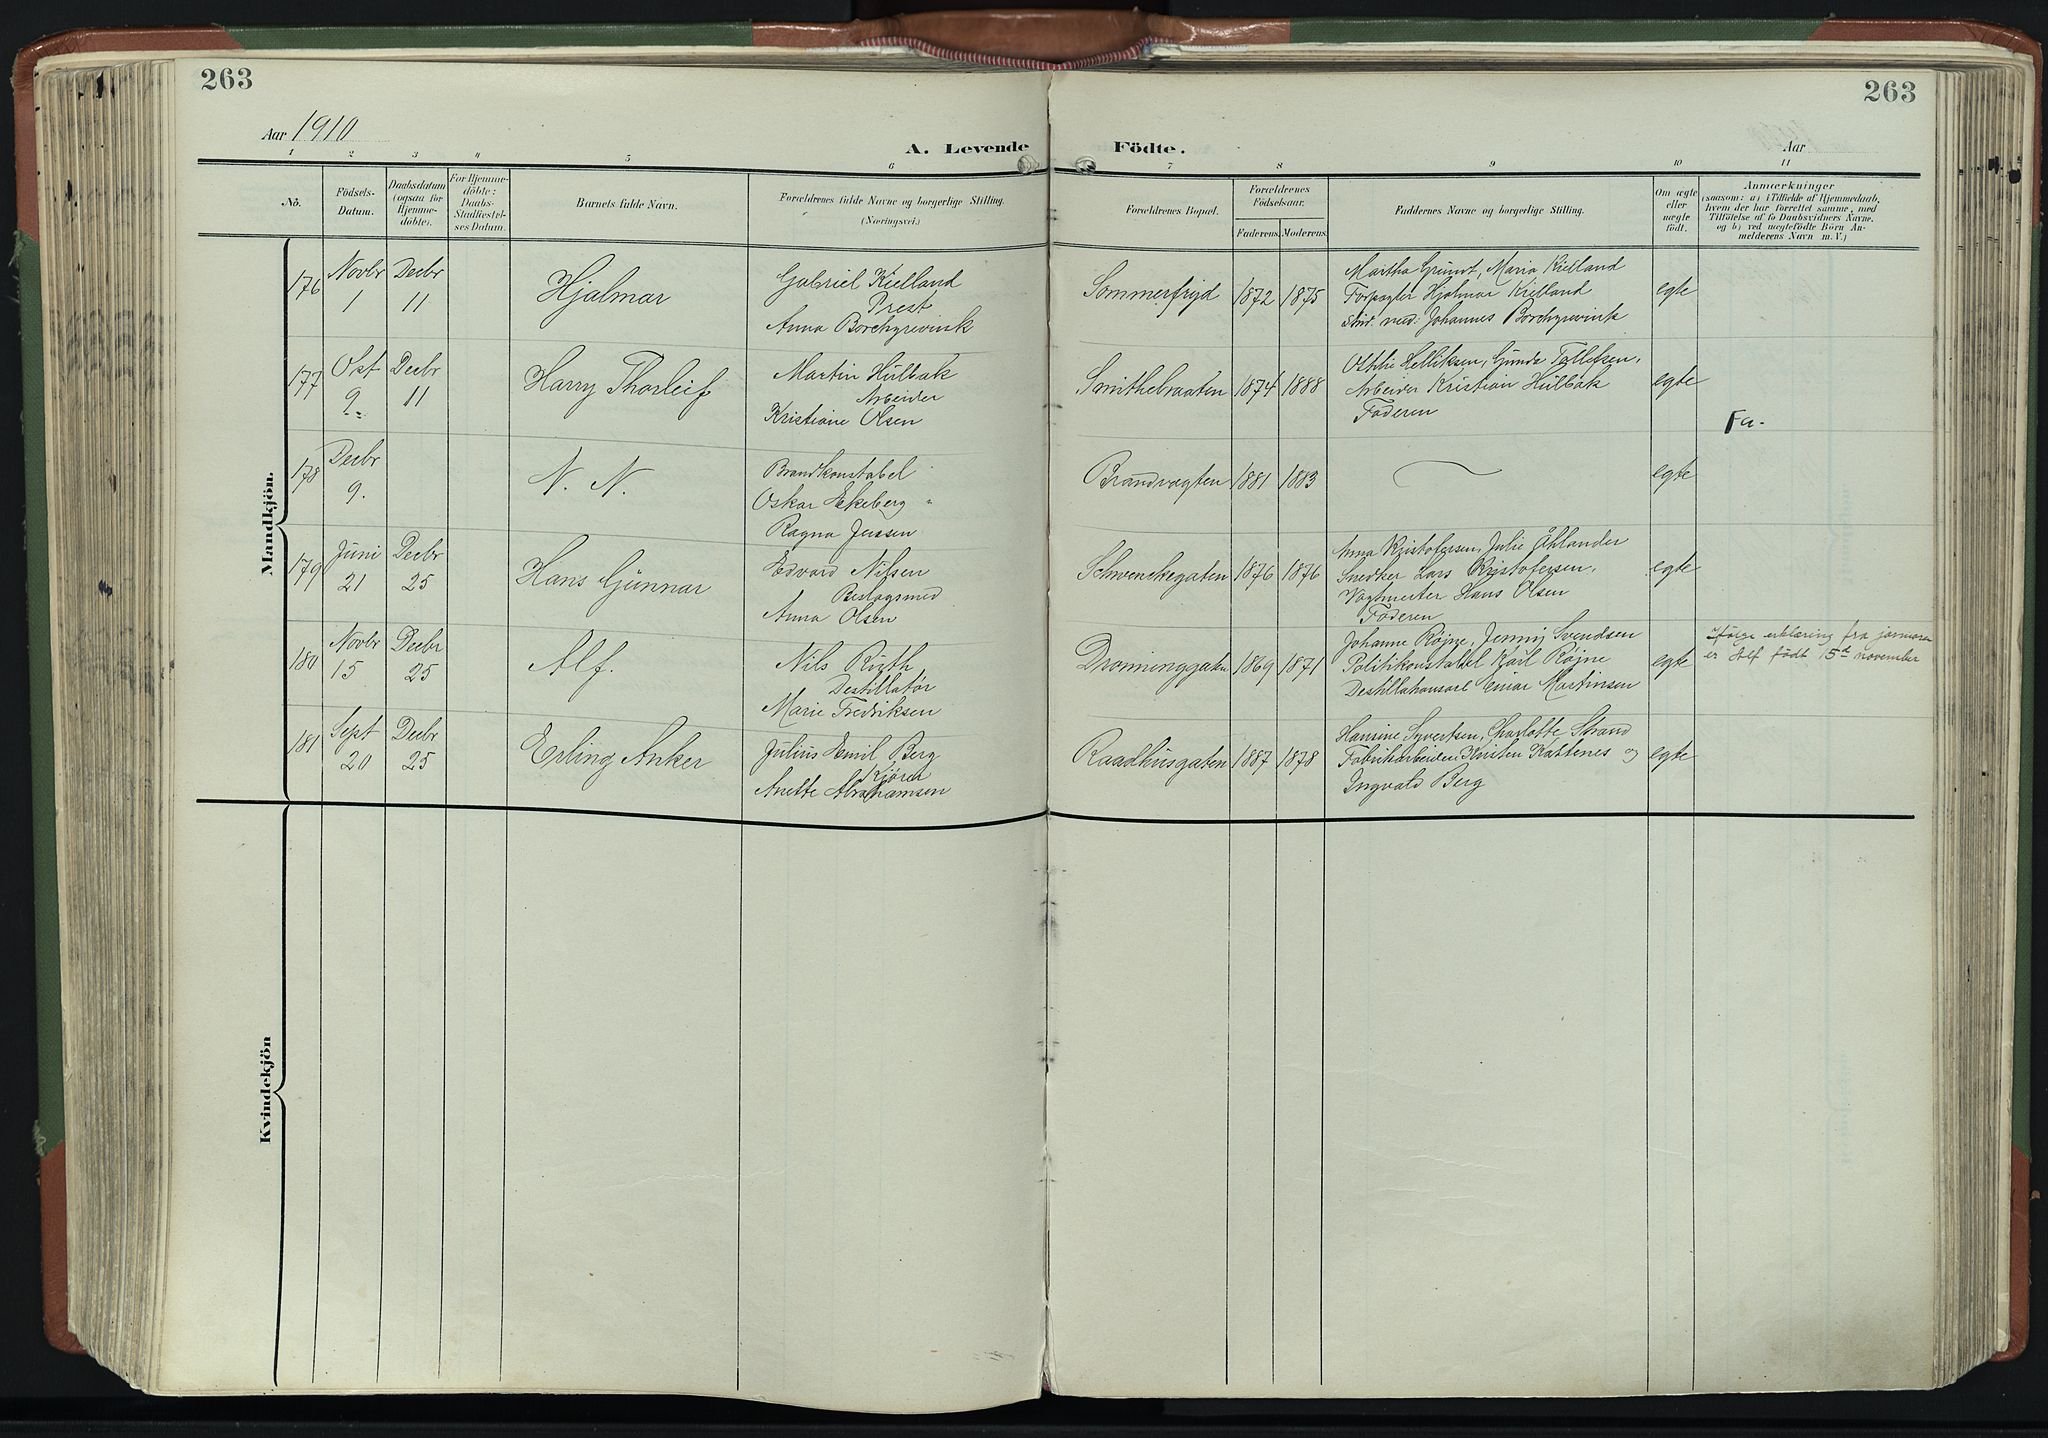 263
263
Aar 1910
A. Levende Födte.
Aar
1 2 3 4 5 6 7 8 9 10 11
No. Födsels-Datum. Daabsdatum (ogsaa for Hjemme-döbte). For Hjemme-döbte: Daabs-Stadfæstel-ses Datum. Barnets fulde Navn. Forældrenes fulde Navne og borgerlige Stilling. (Næringsvei.) Forældrenes Bopæl. Forældrenes Födselsaar. Faderens. Moderens. Faddernes Navne og borgerlige Stilling. Om ægte eller uægte födt. Anmærkninger (saasom: a) i Tilfælde af Hjemmedaab, hvem der har forrettet samme, med Tilföielse af to Daabsvidners Navne, og b) ved uægtefödte Börn Anmelderens Navn m. V.)
Mandkjön.
176 Novbr 1 Decbr 11 Hjalmar
Gabriel Kielland
Prest
Anna Borchgrevink
Sommerfryd 1872 1875
Martha Grundt, Maria Kielland
Forpagter Hjalmar Kielland
stud. med: Johannes Borchgrevink
egte
177 Okt 9 Decbr 11 Harry Thorleif
Martin Hülbak
Arbeider
Kristiane Olsen
Smithebraaten 1874 1888
Othilie Helliksen, Gunda Tollefsen,
Arbeider Kristian Hülbak
Faderen
egte
Fa.
178 Decbr 9. N. N.
Brandkonstabel
Oskar Ekeberg
Ragna Jenssen
Brandvagten 1881 1883
egte
179 Juni 21 Decbr 25 Hans Gunnar
Edvard Nilsen
Beslagsmed
Anna Olsen
Schwenckegaten 1876 1876
Anna Kristofersen, Julie Åhlander
Snedker Lars Kristofersen,
Vagtmester Hans Olsen
Faderen
egte
180 Novbr 15 Decbr 25 Alf.
Nils Ruth
Destillatør
Marie Fredriksen
Dronninggaten 1869 1871
Johanne Røjne, Jenny Svendsen
Politikonstabel Karl Røjne
Einar Martinsen
egte
Ifølge erklæring fra
er Alf født 15de november
181 Sept 20 Decbr 25 Erling Anker
Julius Emil Berg
Kjører
Anette Abrahamsen
Raadhusgaten 1887 1878
Hansine Syvertsen, Charlotte Strand
Fabrikarbeider Kristen Kastenes og
Ingvald Berg
egte
Kvindekjön